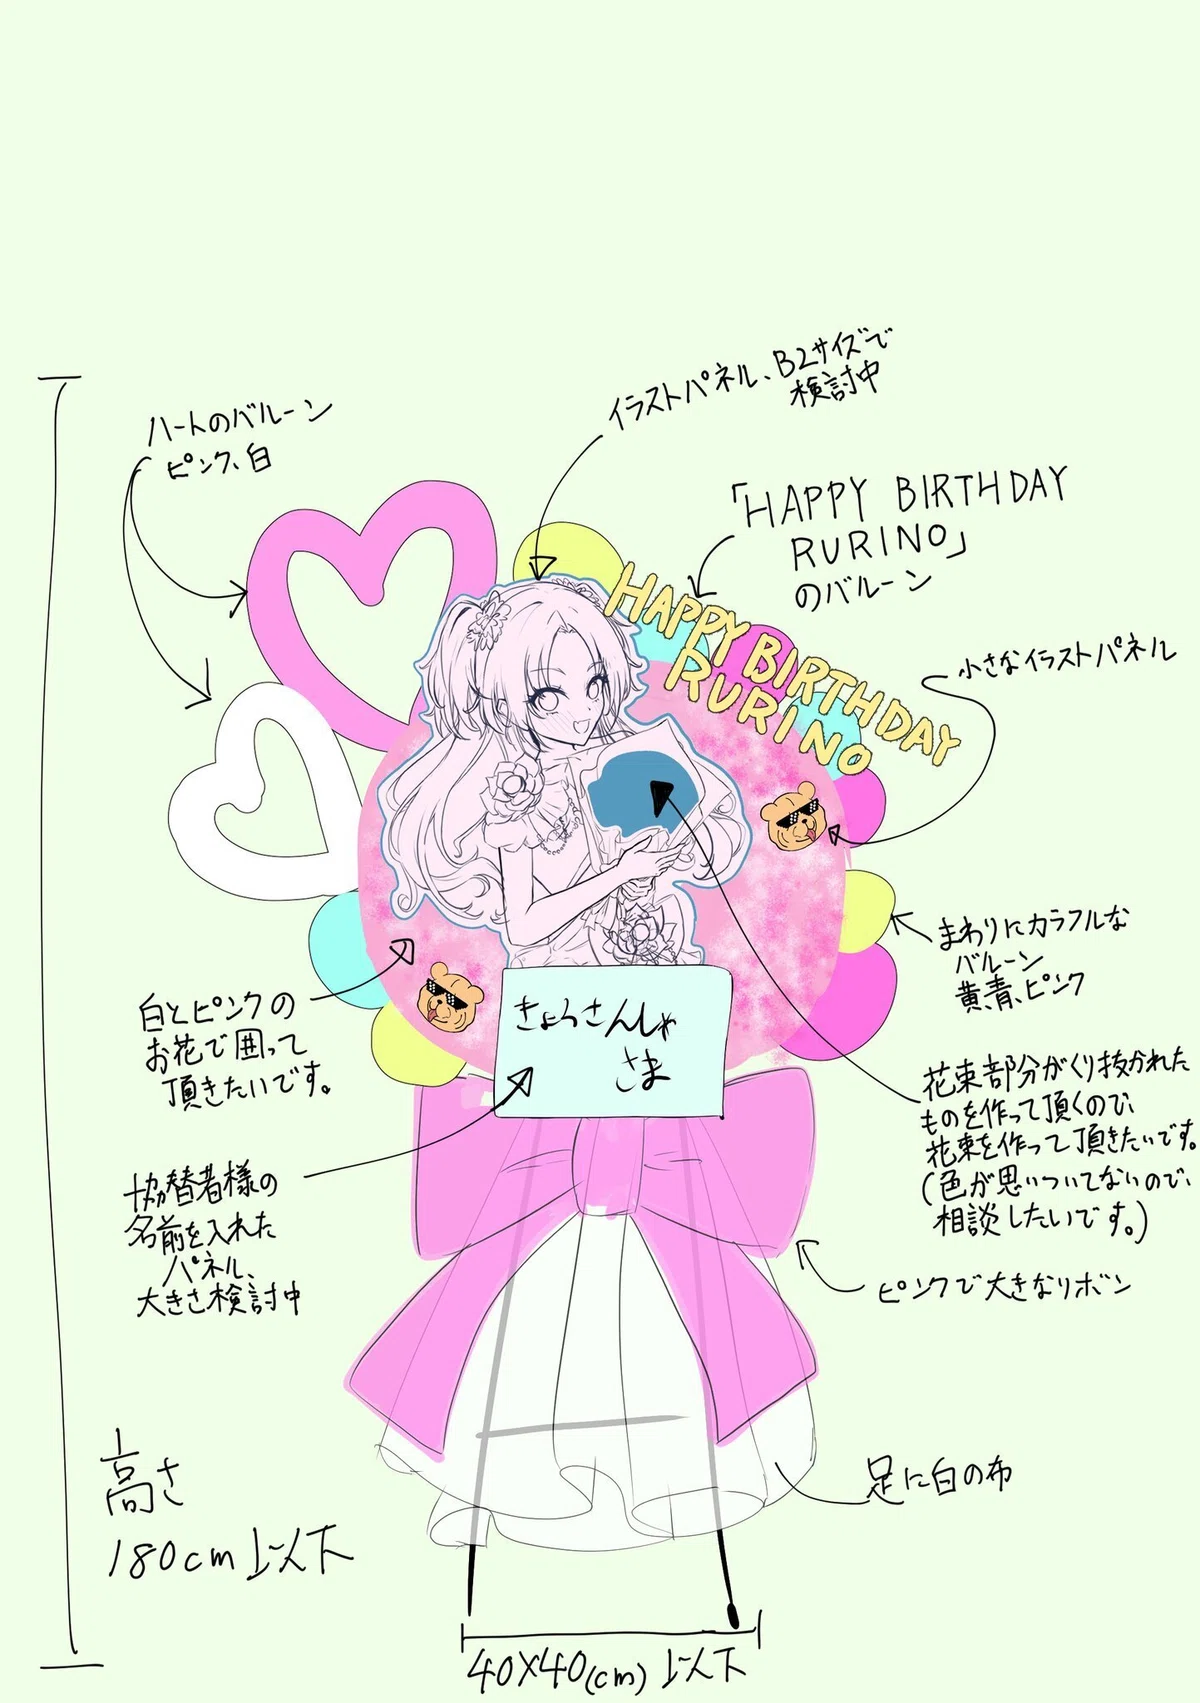 イラストパネル、B2サイズで
検討中
ハートのバルーン
ピンク、白
「HAPPY BIRTHDAY
RURINO」
のバルーン
HAPPY BIRTHDAY
RURINO
小さなイラストパネル
まわりにカラフルな
バルーン
黄、青、ピンク
白とピンクの
お花で囲って
頂きたいです。
きょうさんしゃ
さま
花束部分がくり抜かれた
ものを作って頂くので、
花束を作って頂きたいです。
(色が思いついてないので、
相談したいです。)
協替者様の
名前を入れた
パネル、
大きさ検討中
ピンクで大きなリボン
足に白の布
高さ
180cm以下
40×40(cm)以下